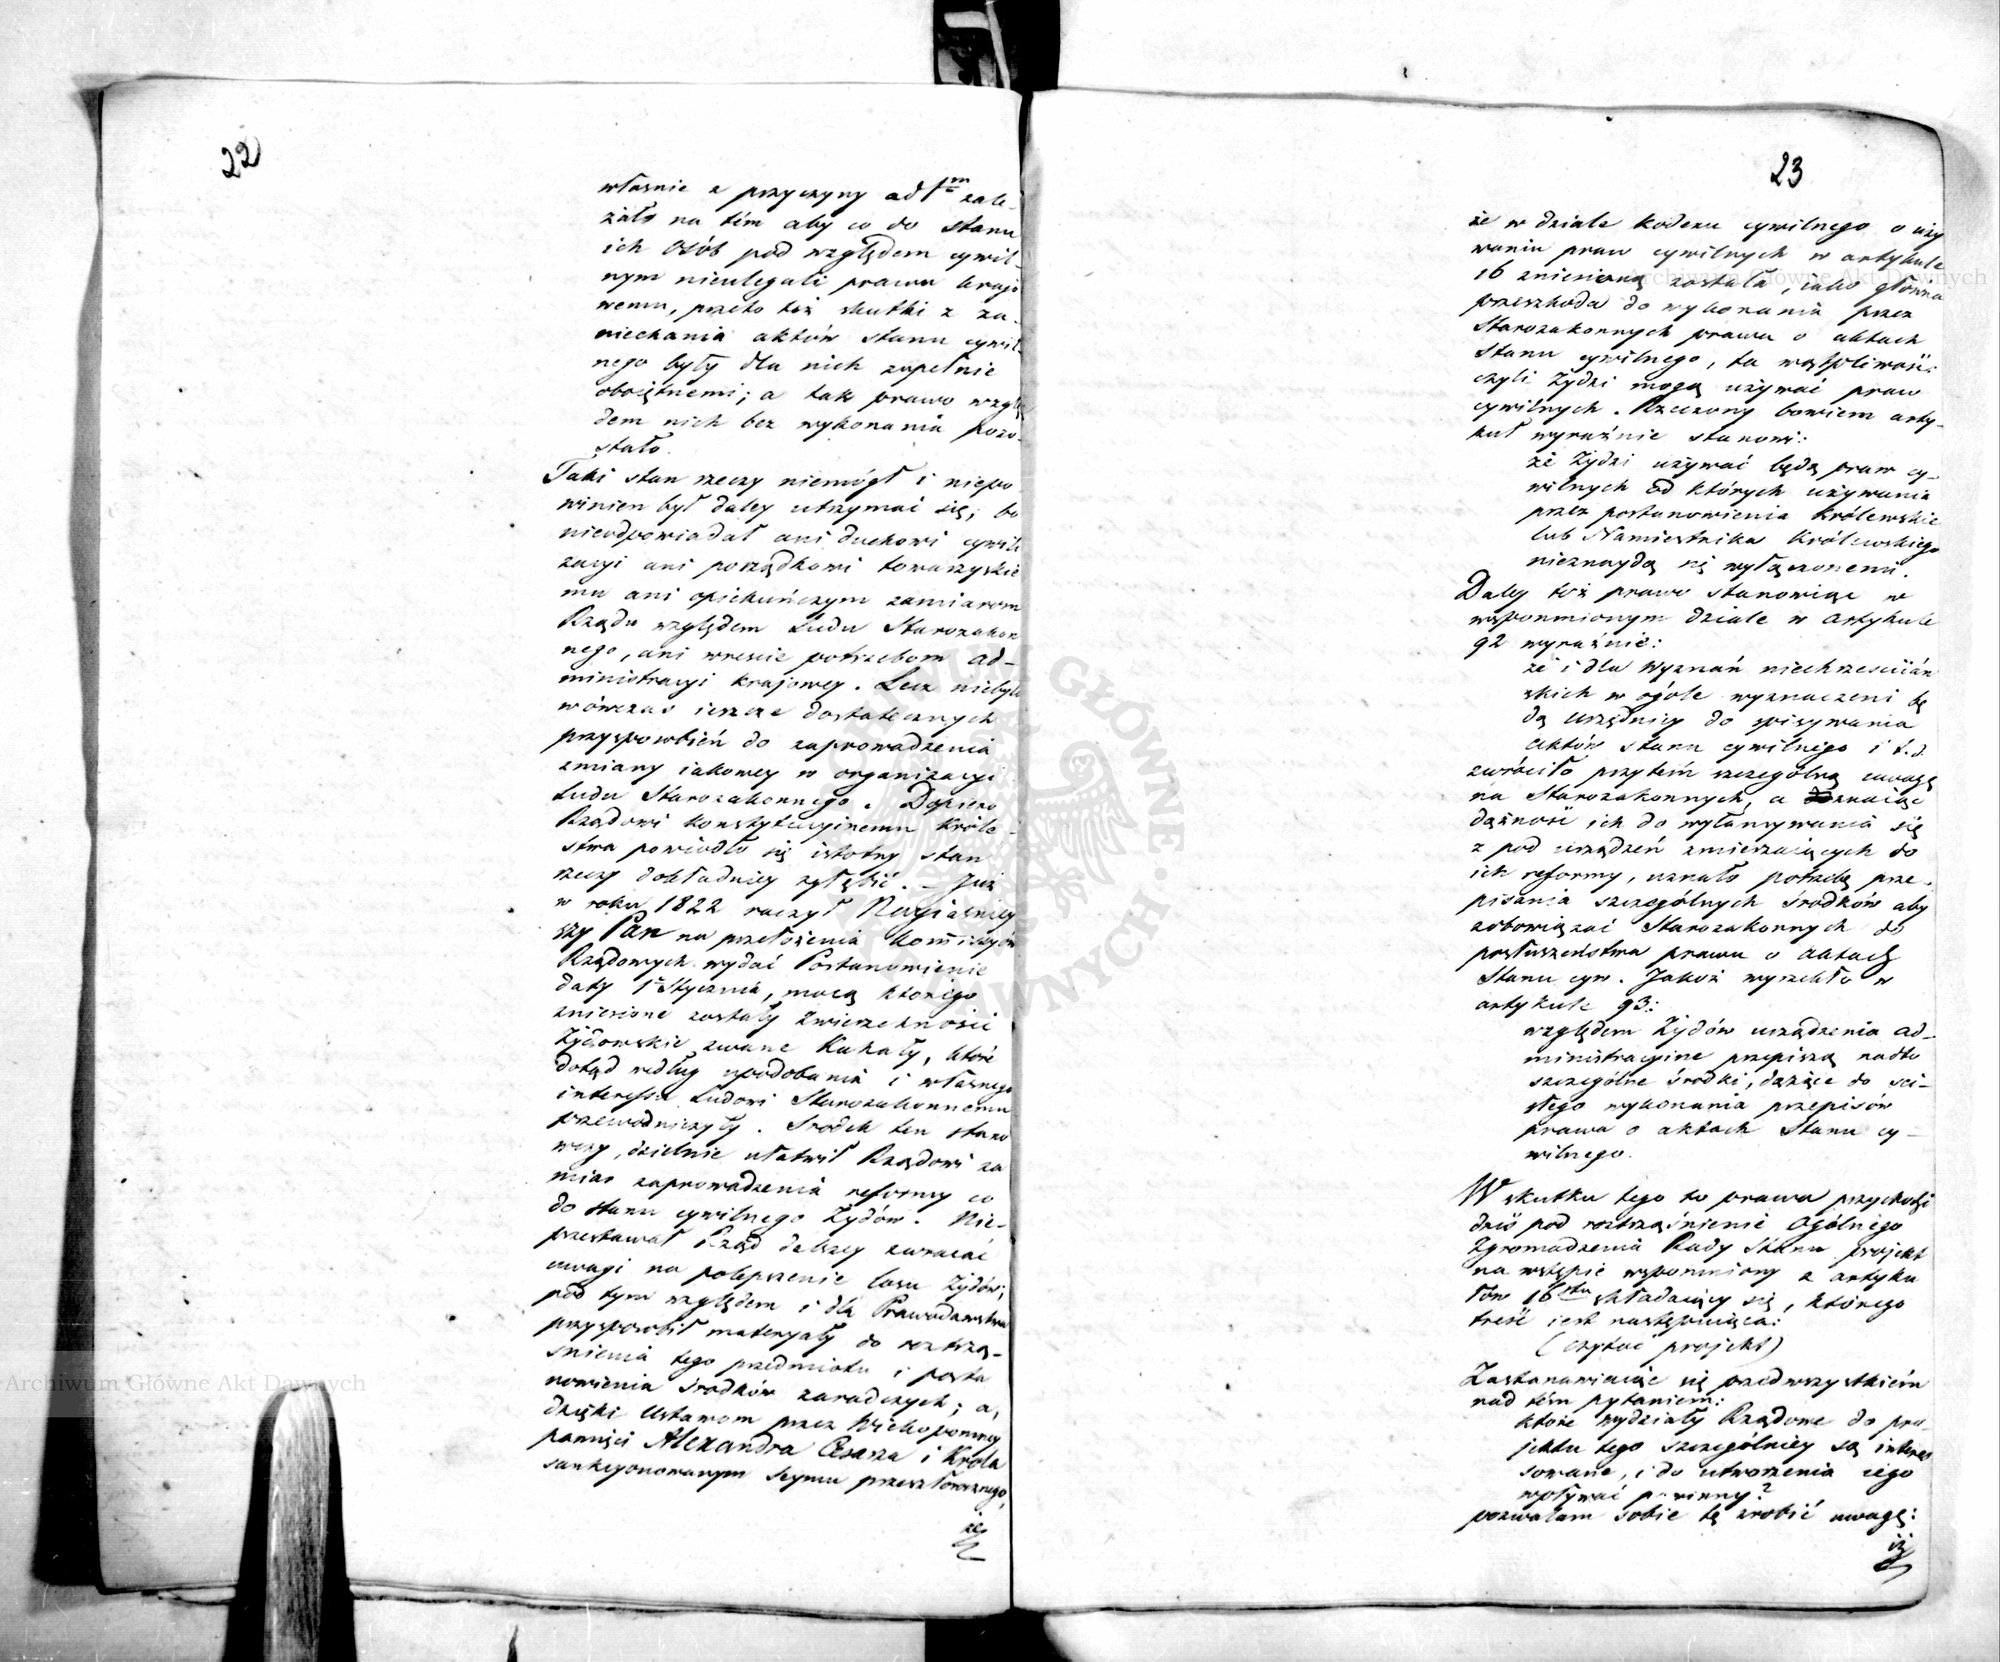 22
własnie z przyczyny ad 1m zale-
żało na tém aby co do stanu
ich Osób pod względem cywil-
nym nieulegali prawu krajo
wemu, przeto też skutki z za-
niechania aktów stanu cywil-
nego były dla nich zupełnie
obojętnemi; a tak prawo wzglę
dem nich bez wykonania pozo-
stało.
Taki stan rzeczy niemógł i niepo
winien był daley utrzymać się; bo
nieodpowiadał ani duchowi cywili
zacyi ani porządkowi towarzyskie
mu ani opiekuńczym zamiarom
Rządu względem Ludu Starozakon
nego, ani wreście potrzebom ad-
ministracyi krajowey. Lecz niebyło
wówczas ieszcze dostatecznych
przysposobień do zaprowadzenia
zmiany iakowey w organizacyi
Ludu Starozakonnego. Dopiero
Rządowi konstytucyinemu Króle-
stwa powiodło się istotny stan
rzeczy dokładniey zgłębić. – Już
w roku 1822 raczył Nayiaśniey
szy Pan na przełożenia Kommissyów
Rządowych wydać Postanowienie
daty 1 Stycznia, mocą którego
zniesione zostały Zwierzchności
Żydowskie zwane Kahały, które
dotąd według upodobania i własnego
interessu Ludowi Starozakonnemu
przewodniczyły. Środek ten stano
wczy, dzielnie ułatwił Rządowi za
miar zaprowadzenia reformy co
do stanu cywilnego Żydów. Nie-
przestawał Rząd dalszey zwracać
uwagi na polepszenie losu Żydów;
pod tym względem i dla Prawodawstwa
przysposobił materyały do roztrzą-
śnienia tego przedmiotu i posta
nowienia środków zaradczych; a,
dzięki Ustawom przez Wiekopomney
pamięci Alexandra Cesarza i Króla
sankcyonowanym Seymu przeszłorocznego,
że
23
że w dziale kodexu cywilnego o uży
waniu praw cywilnych w artykule
16 zniesioną została, iako główna
przeszkoda do wykonania przez
Starozakonnych prawa o aktach
Stanu cywilnego, ta wątpliwość:
czyli Żydzi mogą używać praw
cywilnych. Rzeczony bowiem arty-
kuł wyraźnie stanowi:
że Żydzi używać będą praw cy-
wilnych od których używania
przez postanowienia Królewskie
lub Namiestnika Królewskiego
nieznaydą się wyłączonemi.
Daley też prawo stanowiąc w
wspomnionym dziale w artykule
92 wyraźnie:
że i dla wyznań niechrześciiań
skich w ogóle wyznaczeni bę
dą Urzędnicy do spisywania
aktów stanu cywilnego i t.d.
zwróciło przytém szczególną uwagę
na Starozakonnych, a znaiąc
dążność ich do wyłamywania się
z pod urządzeń zmierzaiących do
ich reformy, uznało potrzebę prze-
pisania szczególnych środków aby
zobowiązać Starozakonnych do
posłuszeństwa prawu o aktach
Stanu cyw. Jakoż wyrzekło w
artykule 93:
względem Żydów urządzenia ad-
ministracyine przepiszą nadto
szczególne środki, dążące do ści-
słego wykonania przepisów
prawa o aktach Stanu cy-
wilnego.
W skutku tego to prawa przychodzi
dziś pod roztrząśnienie Ogólnego
Zgromadzenia Rady Stanu projekt
na wstępie wspomniony z artyku
łów 16stu składaiący się, którego
treść iest następuiąca:
(czytać projekt)
Zastanawiaiąc się przedwszystkiém
nad tém pytaniem:
które wydziały Rządowe do pro
jektu tego szczególniey są intere
sowane, i do utworzenia iego
wpływać powinny?
pozwalam sobie tę zrobić uwagę:
iż
Archiwum Główne Akt Dawnych
Archiwum Główne Akt Dawnych